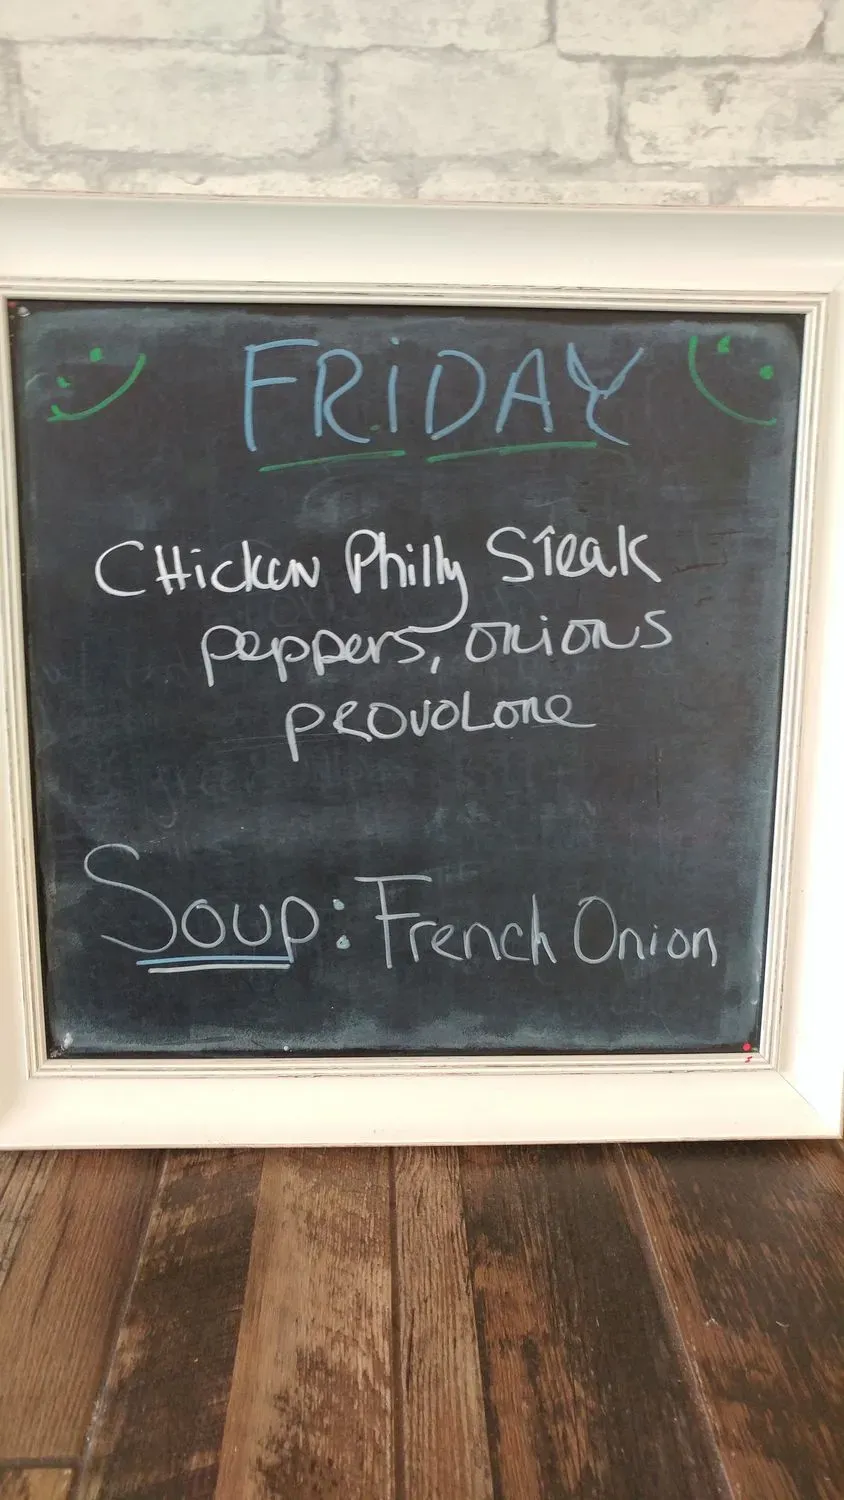 FRiDAY
CHicken Philly Steak
peppers, onions
PROVOLone
Soup: French Onion